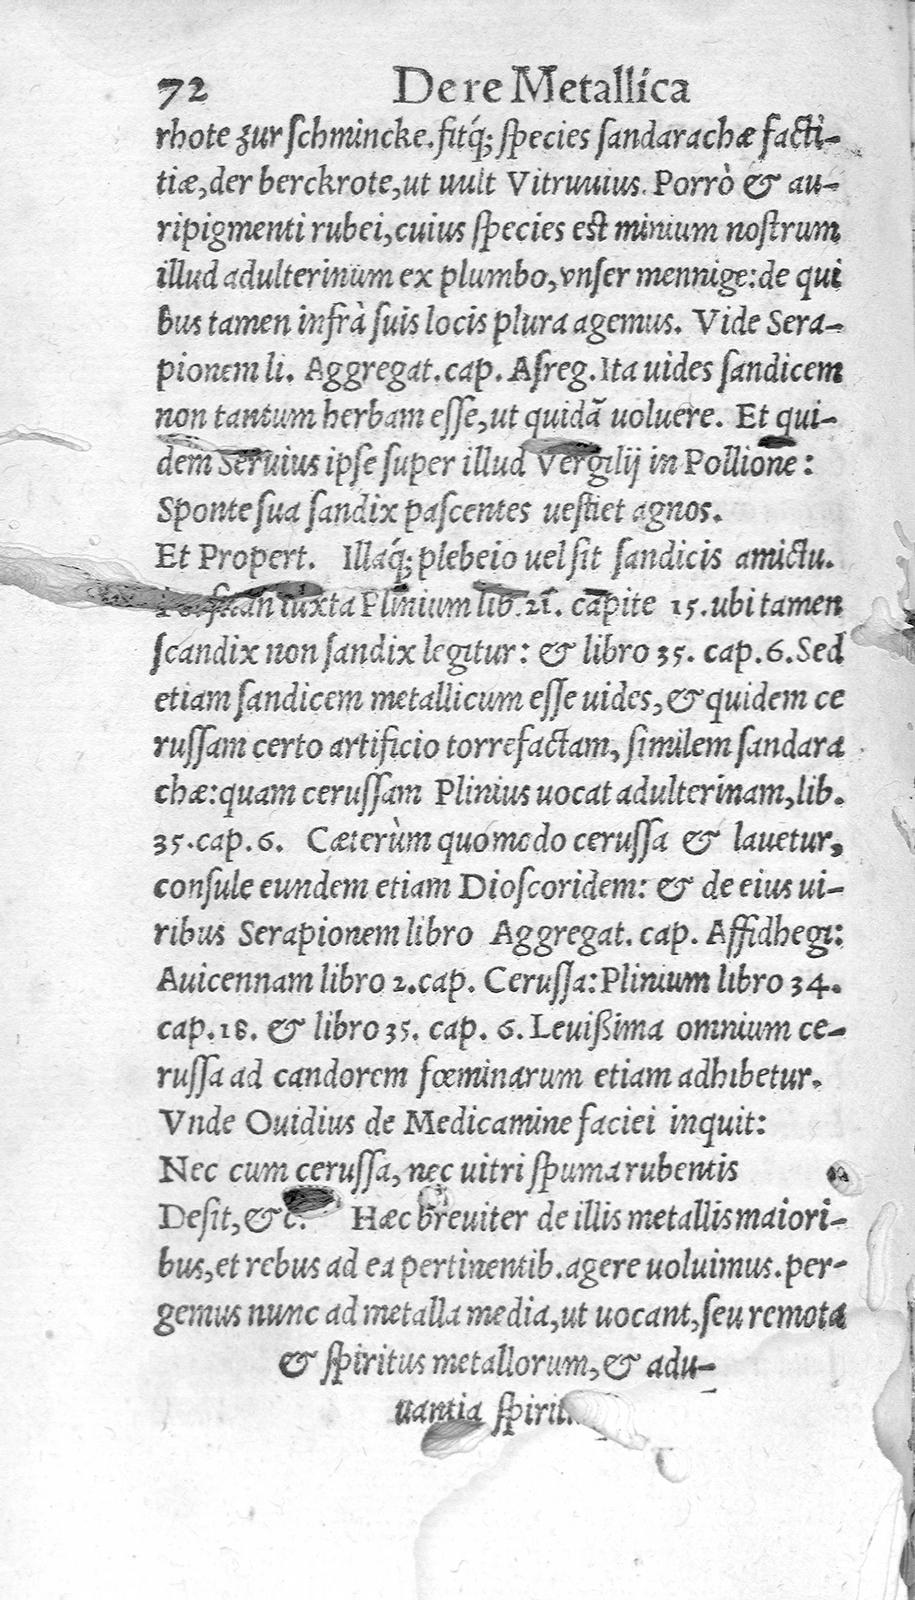 72 De re Metallica
rhote zur schmincke. fitq́; species sandarachæ facti-
tiæ, der berckrote, ut uult Vitruuius. Porrò & au-
ripigmenti rubei, cuius species est minium nostrum
illud adulterinum ex plumbo, vnser mennige: de qui
bus tamen infrà suis locis plura agemus. Vide Sera-
pionem li. Aggregat. cap. Asreg. Ita uides sandicem
non tantum herbam esse, ut quidã uoluere. Et qui-
dem Seruius ipse super illud Vergilij in Pollione:
Sponte sua sandix pascentes uestiet agnos.
Et Propert. Illaq́; plebeio uel sit sandicis amictu.
iuxta Plinium lib. 21. capite 15. ubi tamen
scandix non sandix legitur: & libro 35. cap. 6. Sed
etiam sandicem metallicum esse uides, & quidem ce
russam certo artificio torrefactam, similem sandara
chæ: quam cerussam Plinius uocat adulterinam, lib.
35. cap. 6. Cæterùm quomodo cerussa & lauetur,
consule eundem etiam Dioscoridem: & de eius ui-
ribus Serapionem libro Aggregat. cap. Affidhegi:
Auicennam libro 2. cap. Cerussa: Plinium libro 34.
cap. 18. & libro 35. cap. 6. Leuißima omnium ce-
russa ad candorem fœminarum etiam adhibetur.
Vnde Ouidius de Medicamine faciei inquit:
Nec cum cerussa, nec uitri spuma rubentis
Desit, &c. Hæc breuiter de illis metallis maiori-
bus, et rebus ad ea pertinentib. agere uoluimus. per-
gemus nunc ad metalla media, ut uocant, seu remota
& spiritus metallorum, & adu-
uantia